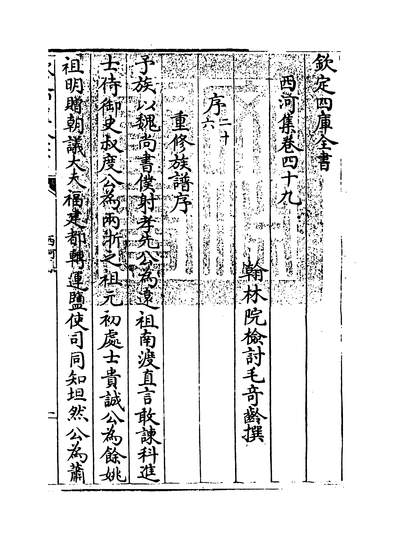 欽定四庫全書
西河集卷四十九
翰林院檢討毛奇齡撰
序二十六
重修族譜序
予族以魏尚書僕射孝先公為遠祖南渡直言敢諫科進
士侍御史叔度公為兩浙之祖元初處士貴誠公為餘姚
祖明贈朝議大夫福建都轉運鹽使司同知坦然公為蕭